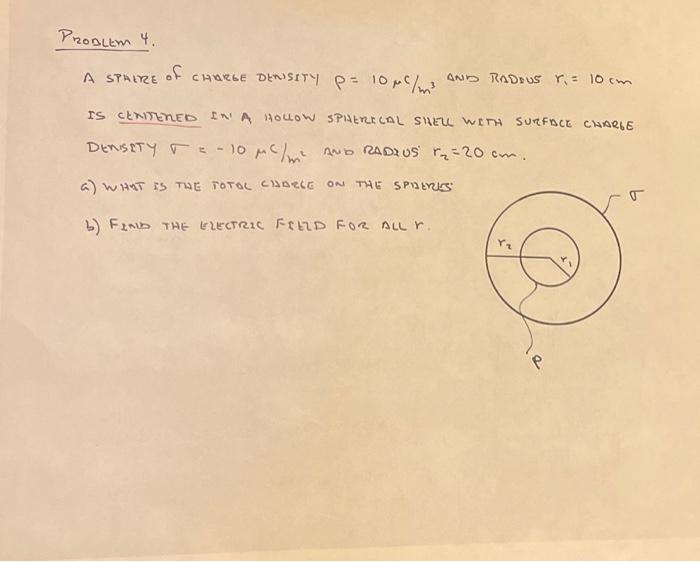 PROBLEM 4.
A SPHERE of CHARGE DENSITY ρ = 10 μC/m³ AND RADIUS r₁ = 10 cm
IS CENTERED IN A HOLLOW SPHERICAL SHELL WITH SURFACE CHARGE
DENSITY σ = -10 μC/m² AND RADIUS r₂ = 20 cm.
a) WHAT IS THE TOTAL CHARGE ON THE SPHERES
b) FIND THE ELECTRIC FIELD FOR ALL r.
σ
r₂
r₁
ρ